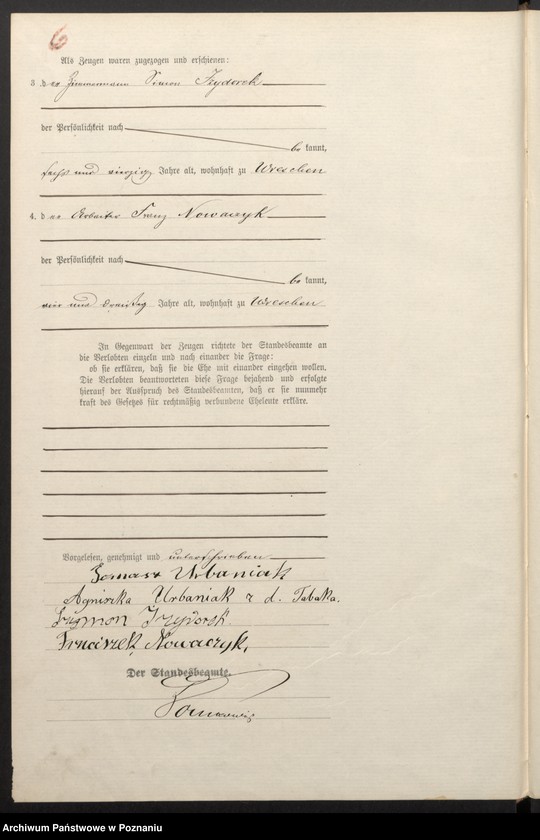 6
Als Zeugen waren zugezogen und erschienen:
3. der Zimmermann Simon Izydorek
der Persönlichkeit nach
be kannt,
sechs und vierzig Jahre alt, wohnhaft zu Wreschen
4. der Arbeiter Franz Nowaczyk
der Persönlichkeit nach
be kannt,
vier und dreißig Jahre alt, wohnhaft zu Wreschen
In Gegenwart der Zeugen richtete der Standesbeamte an
die Verlobten einzeln und nach einander die Frage:
ob sie erklären, daß sie die Ehe mit einander eingehen wollen.
Die Verlobten beantworteten diese Frage bejahend und erfolgte
hierauf der Ausspruch des Standesbeamten, daß er sie nunmehr
kraft des Gesetzes für rechtmäßig verbundene Eheleute erkläre.
Vorgelesen, genehmigt und unterschrieben
Tomasz Urbaniak
Agniszka Urbaniak z d. Tabaka.
Szymon Izydorek
Franciszek Nowaczyk,
Der Standesbeamte.
Archiwum Państwowe w Poznaniu